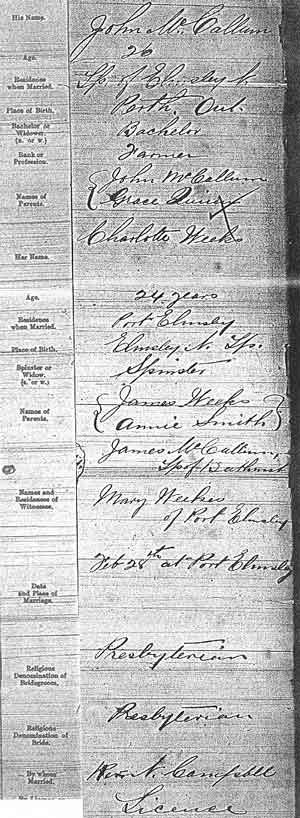 His Name.
John McCallum
Age.
26
Residence when Married.
Tp. of Elmsley N.
Place of Birth.
Perth, Ont.
Bachelor or Widower. (B. or W.)
Bachelor
Rank or Profession.
Farmer
Names of Parents.
John McCallum
Grace
Her Name.
Charlotte Weeks
Age.
24 years
Residence when Married.
Port Elmsley
Place of Birth.
Elmsley N. Tp.
Spinster or Widow. (S. or W.)
Spinster
Names of Parents.
James Weeks
Annie Smith
Names and Residences of Witnesses.
James McCallum,
Tp of Bathurst
Mary Weekes
of Port Elmsley
Date and Place of Marriage.
Feb 28th at Port Elmsley
Religious Denomination of Bridegroom.
Presbyterian
Religious Denomination of Bride.
Presbyterian
By whom Married.
Rev. N. Campbell
Licence